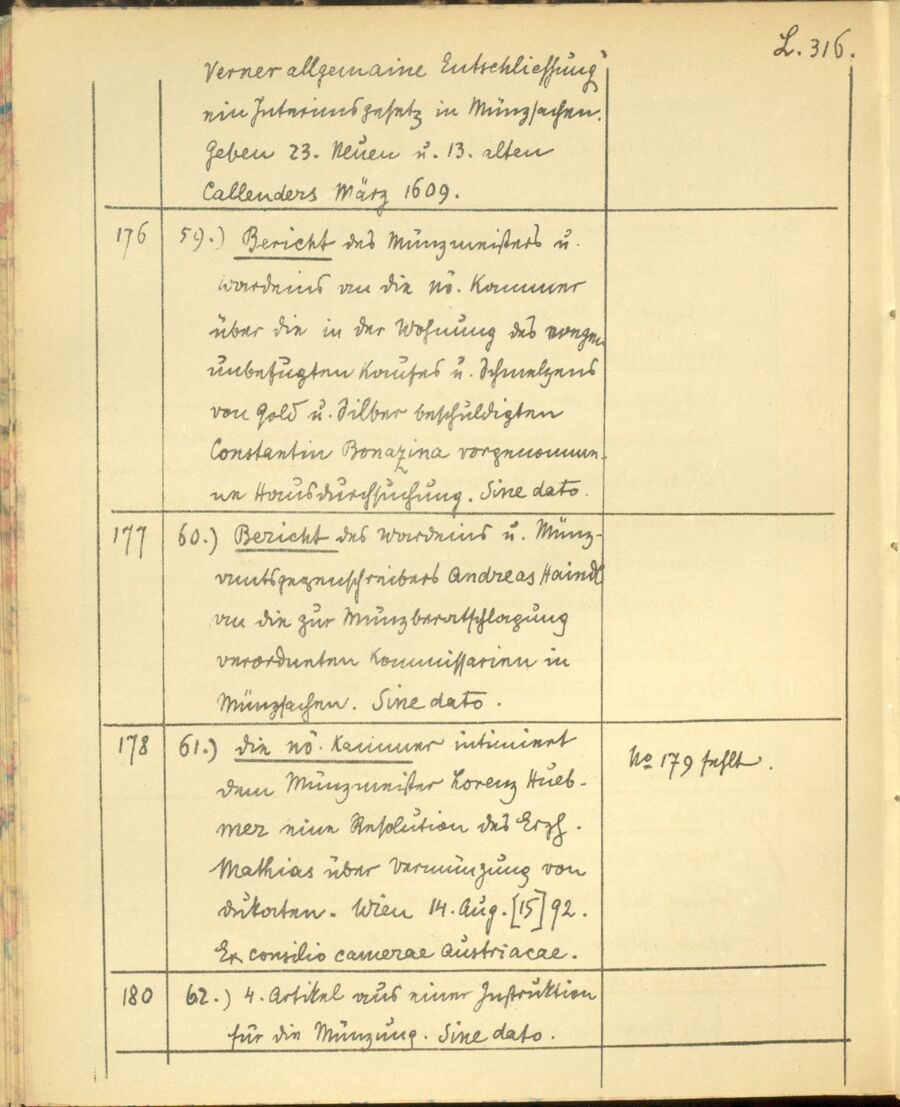 L. 316.
Verner allgemaine Entschliessung
ein Interimsgesetz in Münzsachen.
Geben 23. Neuen u. 13. alten
Callenders März 1609.
176 59.) Bericht des Münzmeisters u.
Wardeins an die nö. Kammer
über die in der Wohnung des wegen
unbefugten Kaufes u. Schmelzens
von Gold u. Silber beschuldigten
Constantin Bonazina vorgenomme-
ne Hausdurchsuchung. Sine dato.
177 60.) Bericht des Wardeins u. Münz-
amtsgegenschreibers Andreas Haindl
an die zur Münzberatschlagung
verordneten Kommissarien in
Münzsachen. Sine dato.
178 61.) die nö. Kammer intimiert
No 179 fehlt.
dem Münzmeister Lorenz Hueb-
mer eine Resolution des Erzh.
Mathias über Vermünzung von
Dukaten. Wien 14. Aug. [15]92.
Ex consilio camerae Austriacae.
180 62.) 4. Artikel aus einer Instruktion
für die Münzung. Sine dato.